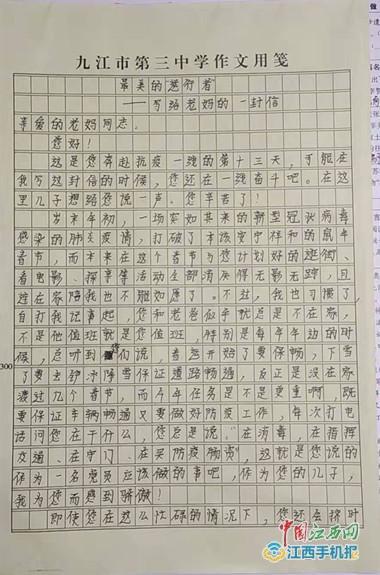 九江市第三中学作文用笺
最美的"逆行者"
——写给老妈的一封信
亲爱的老妈同志:
您好!
这是您奔赴抗疫一线的第十三天,可能在
我写这封信的时候,您还在一线奋斗吧。在这
里儿子想给您说一声。您辛苦了!
岁末年初,一场突如其来的新型冠状病毒
感染的肺炎疫情,打破了本该安宁祥和的鼠年
春节,而本来在这个春节与您计划好的逛街、
看电影、探亲等活动全部消失得无影无踪,且
连在家陪我也不能如愿了。不过,我也习惯了
自打我记事起,您和老爸似乎就总是不在家,
不是他值班就是您值班,特别是每年年边的时
候,总听到您们说,春运开始了要保畅,下雪
了要去铲冰除雪保证道路畅通,反正是没在家
渡过几个春节,而今年任务是不是更重啊,既
要保证车辆畅通又要做好防疫工作,每次打电
话问您在干什么,您总是说"在消毒,在指挥
交通、在守门、在买防疫物资",这就是您说的
作为一名党员应该做的事吧,作为您的儿子,
我为您而感到骄傲!
即使您在这么忙碌的情况下,您还会按时
300
中国江西网
江西手机报